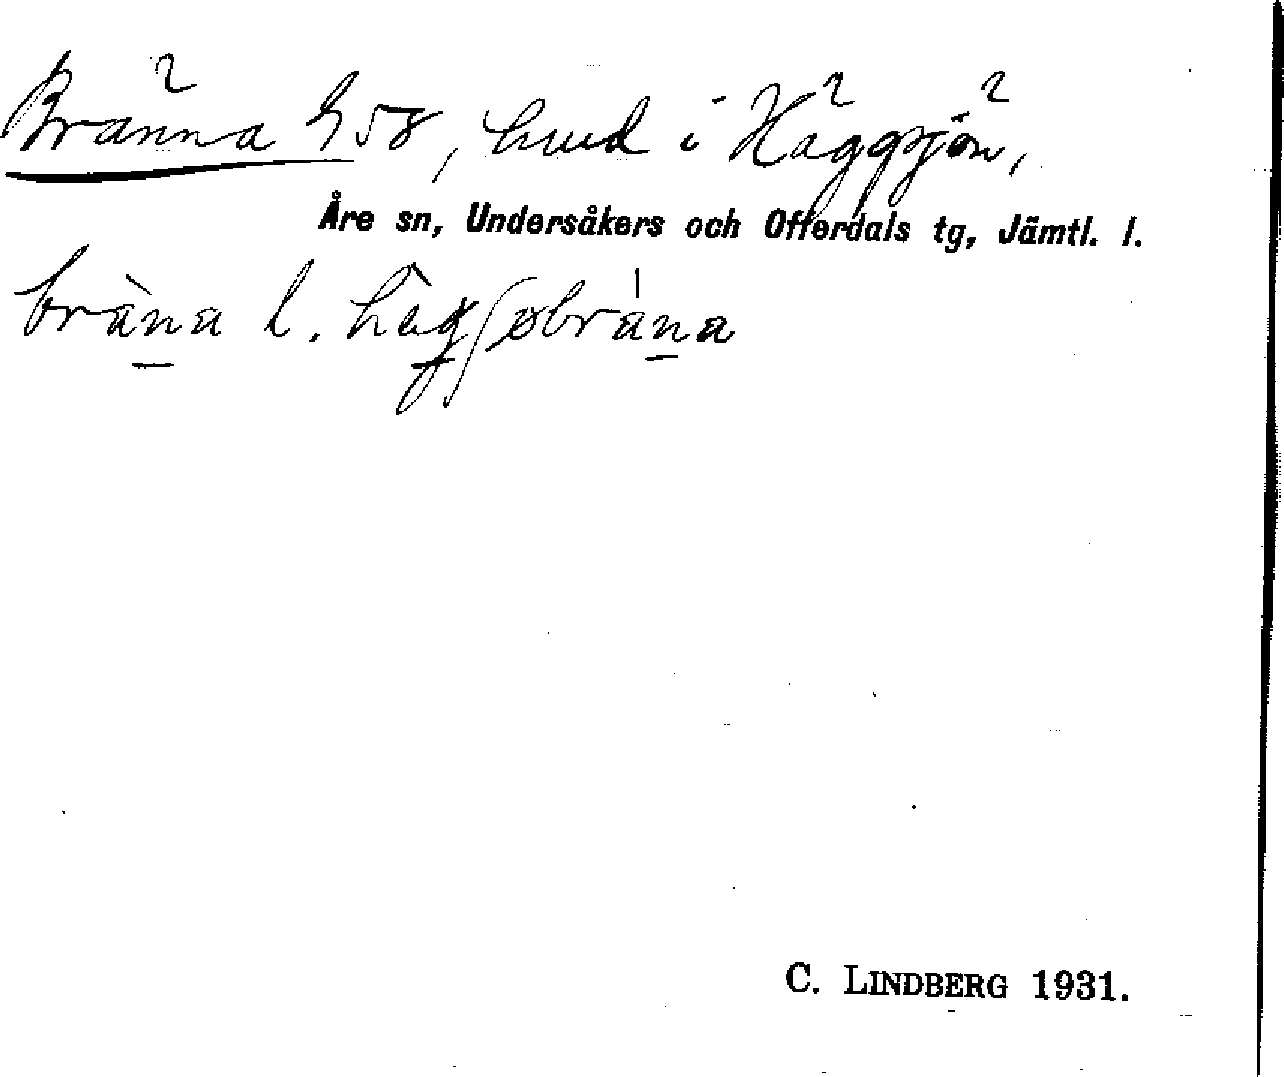 Bränna 958, hmd i Häggsjön,
Åre sn, Undersåkers och Offerdals tg, Jämtl. l.
bràna l. hàgʃøbràna
C. LINDBERG 1931.